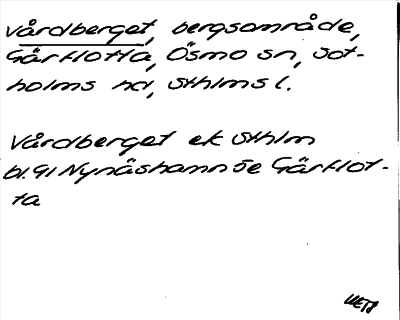 Vårdberget, bergsområde,
Gärflotta, Ösmo sn, Sot-
holms hd, Sthlms l.
Vårdberget ek Sthlm
bl. 91 Nynäshamn 5e Gärflot-
ta